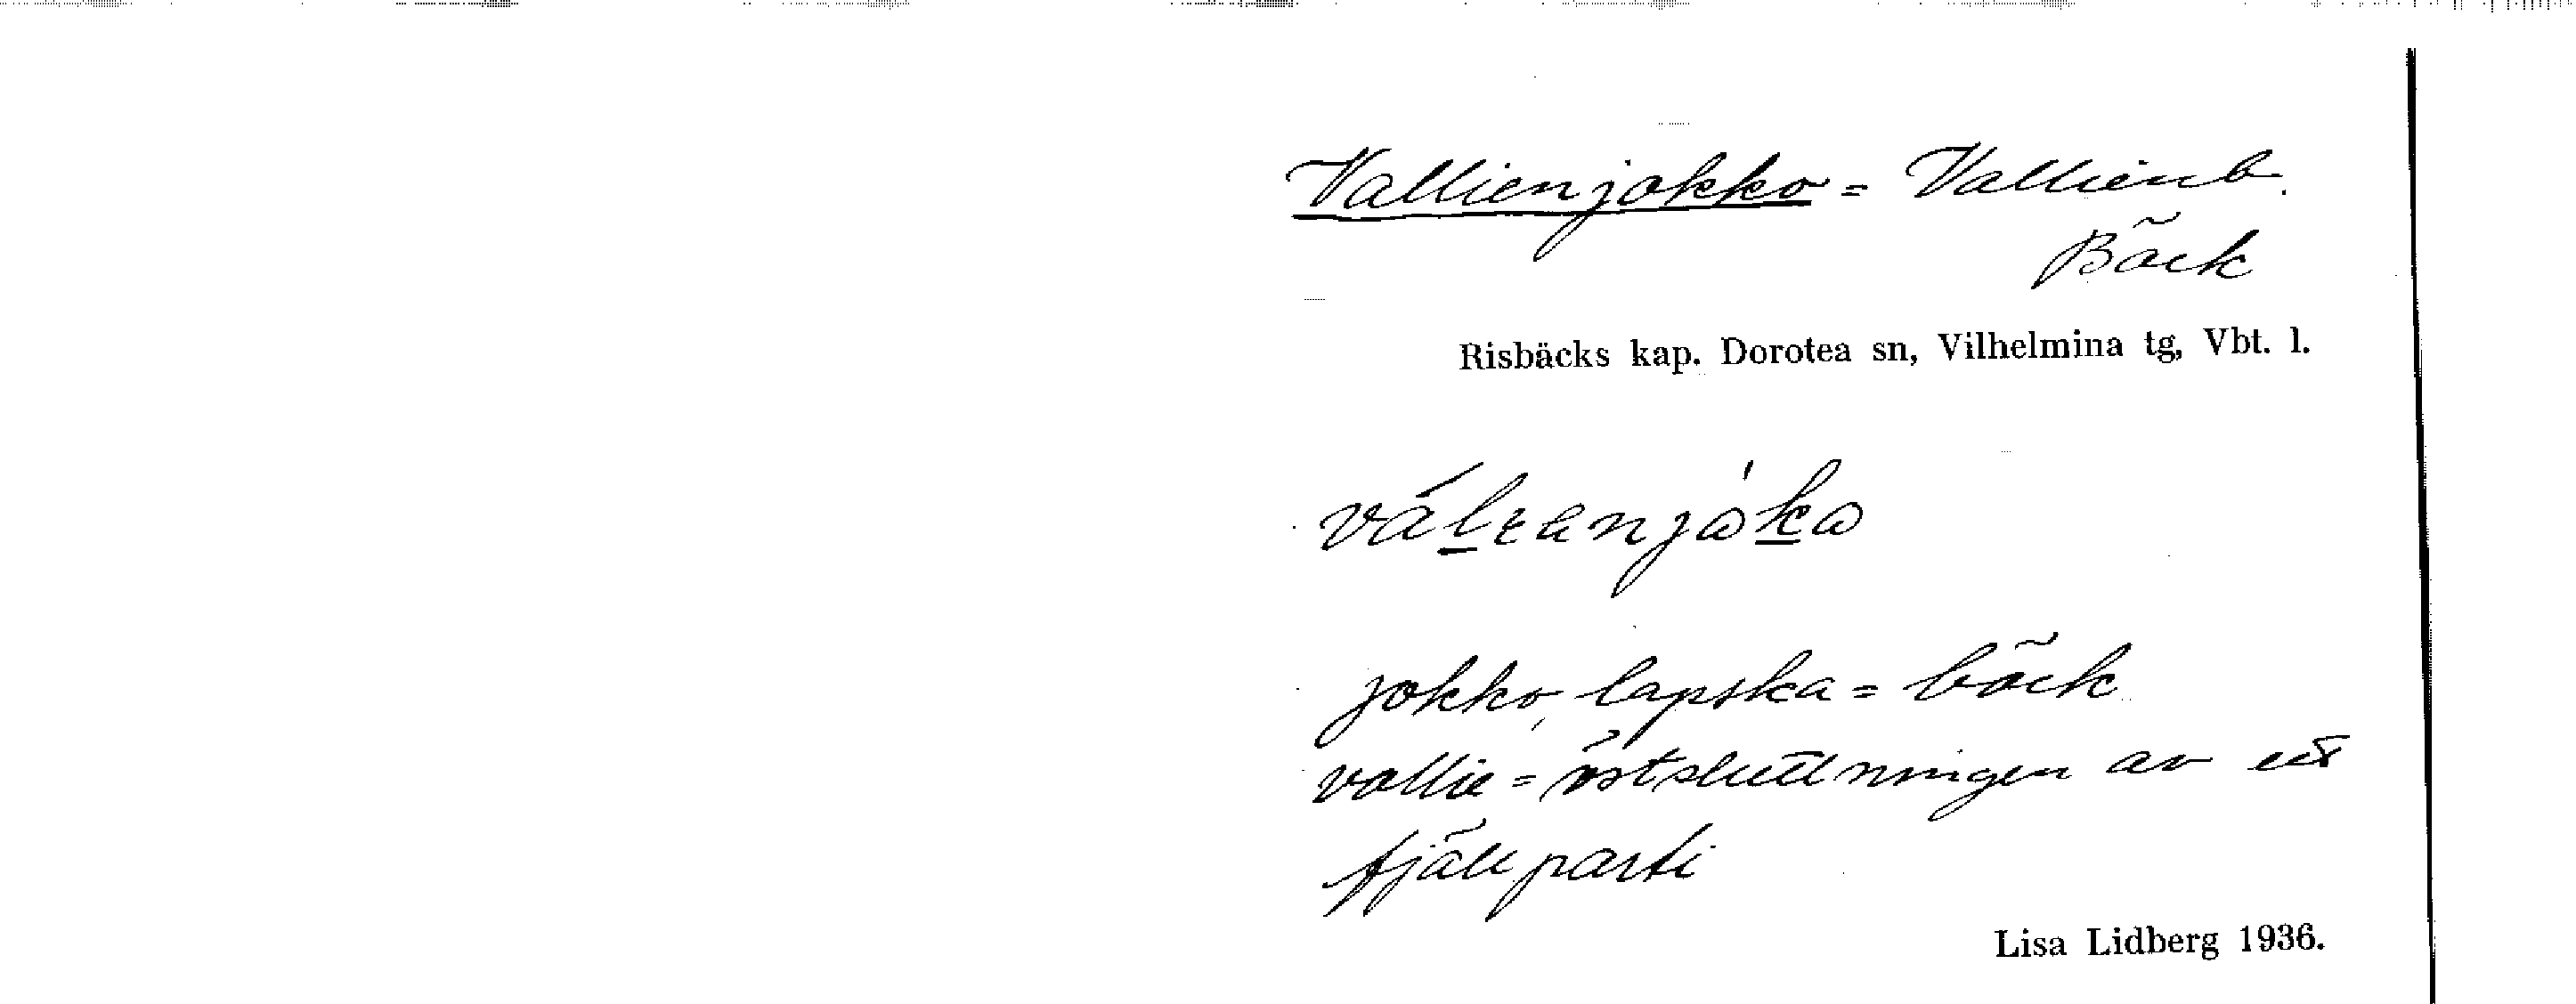 Vallienjokko = Vallienb.
Bäck
Risbäcks kap. Dorotea sn, Vilhelmina tg, Vbt. l.
jokko, lapska = bäck
vallie = östsluttningen av ett
fjällparti
Lisa Lidberg 1936.